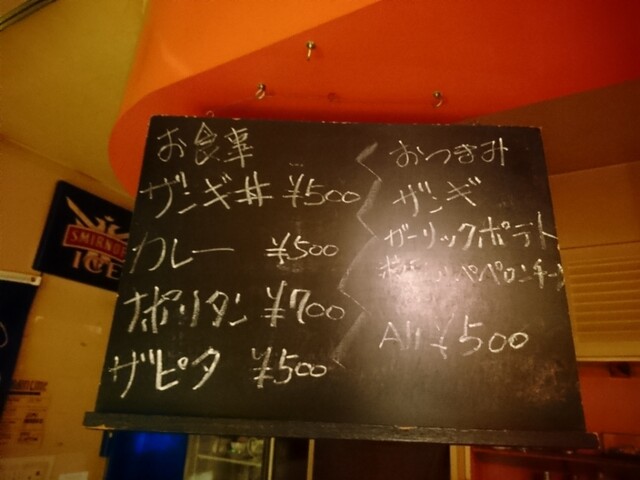 お食事
ザンギ丼 ¥500
カレー ¥500
ナポリタン ¥700
ザピタ ¥500
おつまみ
ザンギ
ガーリックポテト
ペペロンチーノ
All ¥500
SMIRNOFF
ICE